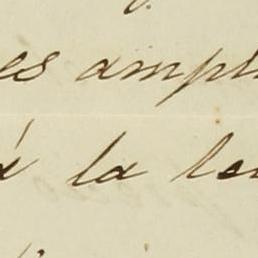 es ampli
á la le